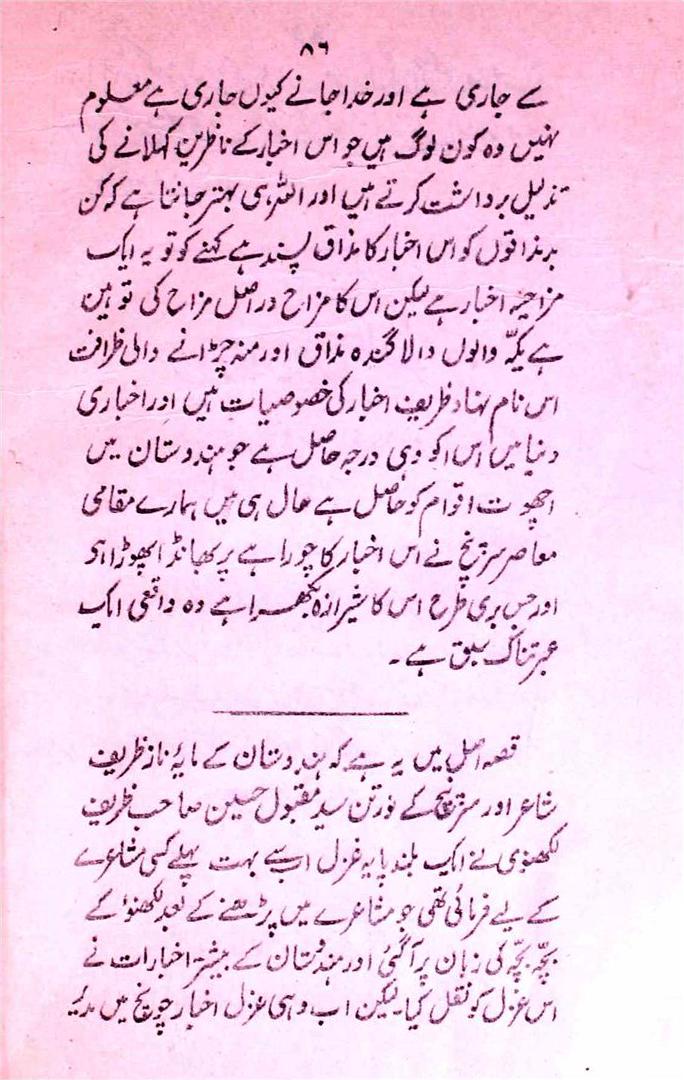 ۸۶
سے جاری ہے اور خدا جانے کیوں جاری ہے معلوم
نہیں وہ کون لوگ ہیں جو اس اخبار کے ناظرین کہلانے کی
تذلیل برداشت کرتے ہیں اور اللہ ہی بہتر جانتا ہے کہ کن
بدمذاقوں کو اس اخبار کا مذاق پسند ہے کہنے کو تو یہ ایک
مزاحیہ اخبار ہے لیکن اس کا مزاح دراصل مزاح کی توہین
ہے یکہّ والوں والا گندہ مذاق اور منہ چڑانے والی ظرافت
اس نام نہاد ظریف اخبار کی خصوصیات ہیں اور اخباری
دنیا میں اس کو وہی درجہ حاصل ہے جو ہندوستان میں
اچھوت اقوام کو حاصل ہے حال ہی میں ہمارے مقامی
معاصر سرپنچ نے اس اخبار کا چوراہے پر بھانڈا پھوڑا ہے
اور جس بری طرح اس کا شیرازہ بکھرا ہے وہ واقعی ایک
عبرتناک سبق ہے۔
قصہ اصل میں یہ ہے کہ ہندوستان کے مایۂ ناز ظریف
شاعر اور سرپنچ کے نورتن سید مقبول حسین صاحب ظریف
لکھنوی نے ایک بلند پایہ غزل اب سے بہت پہلے کسی مشاعرے
کے لیے فرمائی تھی جو مشاعرے میں پڑھنے کے بعد لکھنؤ کے
بچّہ بچّہ کی زبان پر آگئی اور ہندوستان کے بیشتر اخبارات نے
اس غزل کو نقل کیا۔ لیکن اب وہی غزل اخبار چونچ میں مدیر